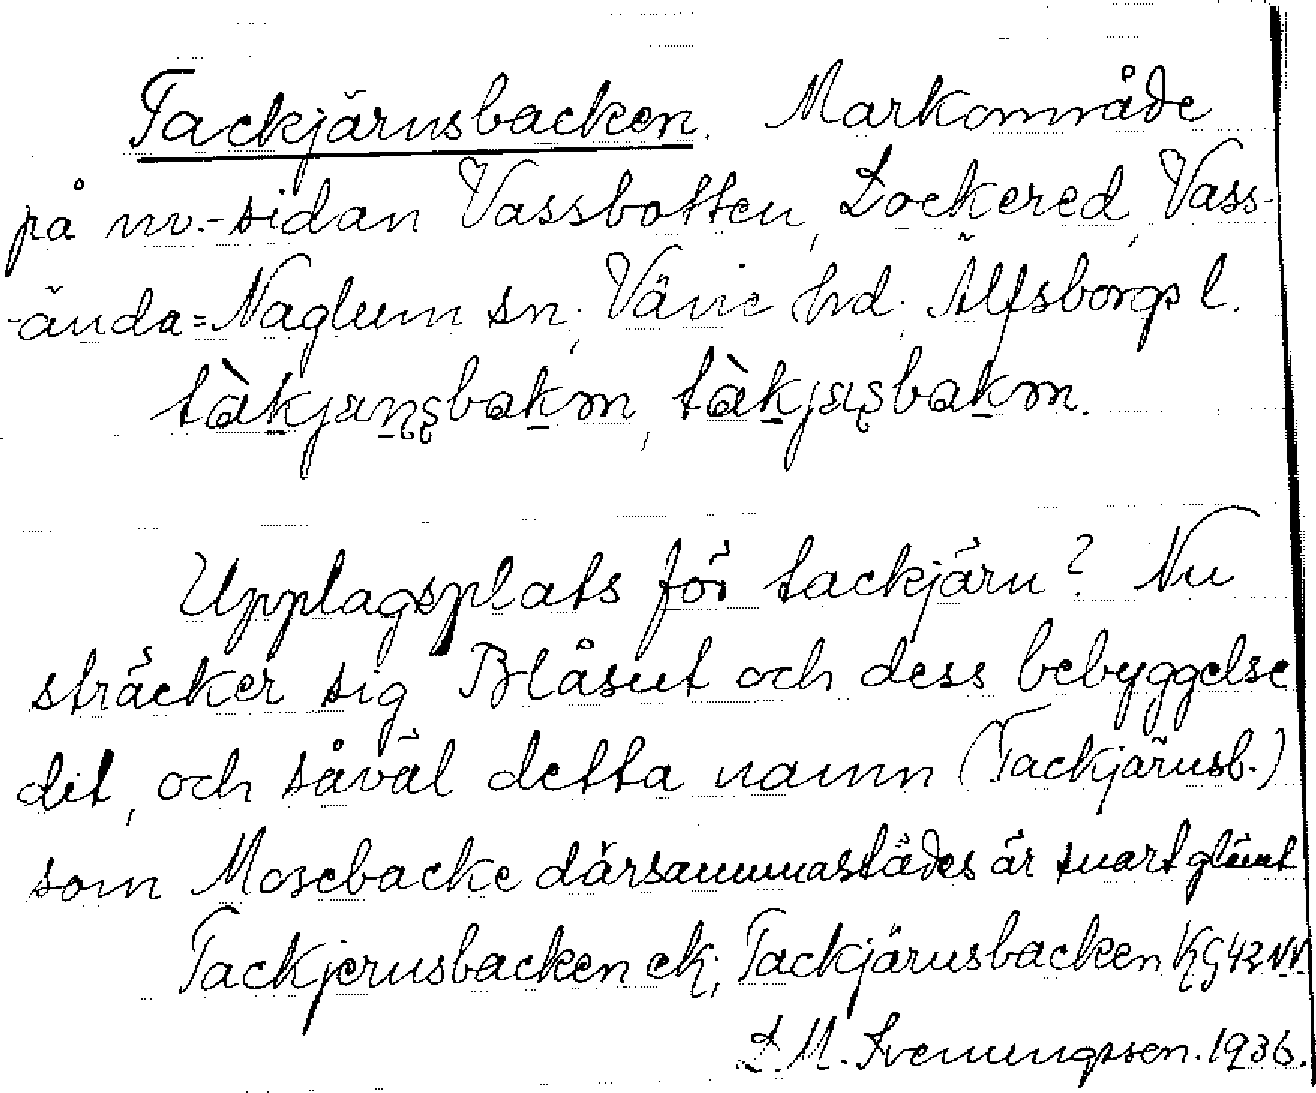 Tackjärnsbacken. Markområde
på nv.-sidan Vassbotten, Lockered, Vass-
-ända=Naglum sn; Väne hd. Älfsborgs l.
tàkjanşbakm, tàkjaşbakm.
Upplagsplats för tackjärn? Nu
sträcker sig Blåsut och dess bebyggelse
dit, och såväl detta namn (Tackjärnsb.)
som Mosebacke därsammastädes är snart glömt
Tackjernsbacken ek; Tackjärnsbacken KG 42 NV.
L. M. Svenungsson. 1936.